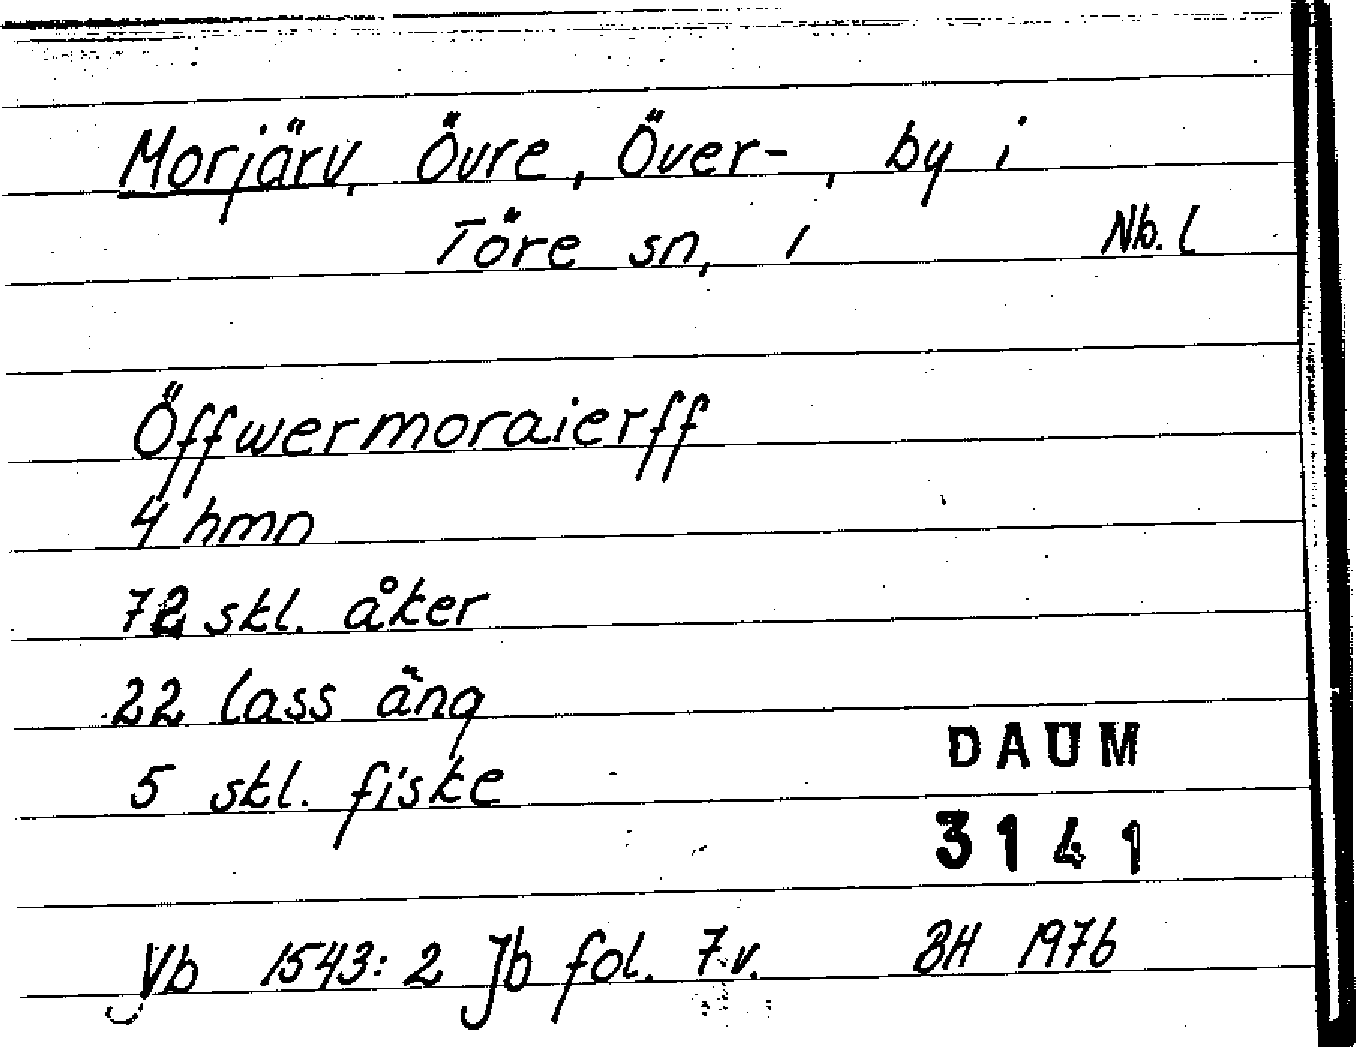 Morjärv, Övre, Över-, by i
Töre sn, 1 Nb. l
Öffwermoraierff
4 hmn
72 skl. åker
22 lass äng
5 skl. fiske
DAUM
3141
Vb 1543: 2 Jb fol. 7.v. BH 1976